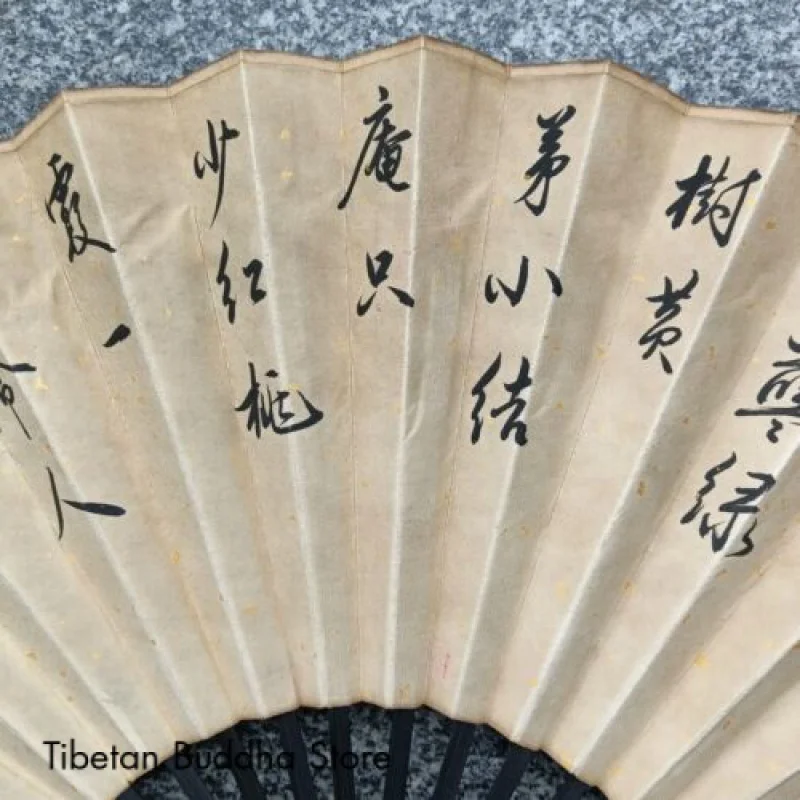 绿
樹黄
茅小结
庵只
少红桃
霞一
人
Tibetan Buddha Store